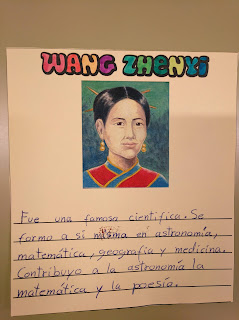 WANG ZHENYI
Fue una famosa científica. Se
formo a sí misma en astronomía,
matemática, geografía y medicina.
Contribuyo a la astronomía la
matemática y la poesía.